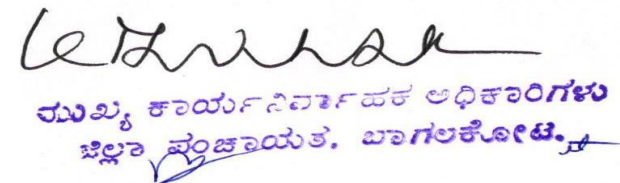 ಮುಖ್ಯ ಕಾರ್ಯನಿರ್ವಾಹಕ ಅಧಿಕಾರಿಗಳು
ಜಿಲ್ಲಾ ಪಂಚಾಯತ. ಬಾಗಲಕೋಟ.